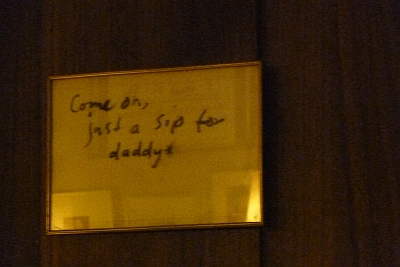 Come on,
just a sip for
daddy*